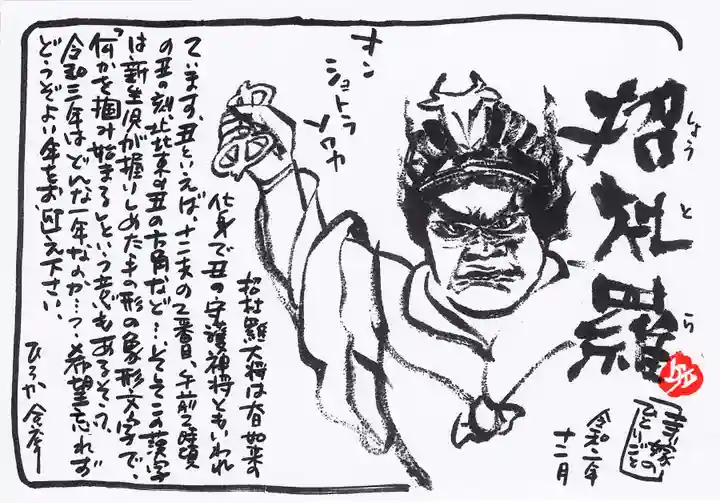 招杜羅
しょうとら
寺嫁のひとりごと
令和二年
十二月
オン
ショトラ
ソワカ
招杜羅大将は大日如来の
化身で丑の守護神将ともいわれ
ています。丑といえば、十二支の2番目、午前2時頃
の丑の刻、北北東の丑の方角など…。そしてこの漢字
は新生児が握りしめた手の形の象形文字で、
“何かを掴み始める”という意もあるそう。
令和三年はどんな一年なのか…？希望忘れず
どうぞよい年をお迎え下さい。
ひろか 合掌